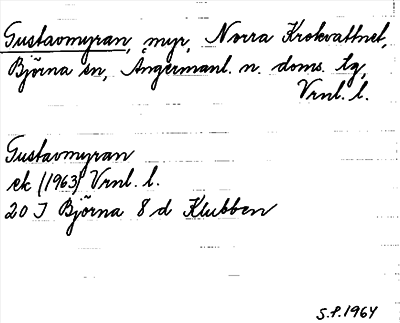 Gustavmyran, myr, Norra Krokvattnet,
Björna sn, Ångermanl. n. doms. tg,
Vrnl. l.
Gustavmyran
ek (1963) Vrnl. l.
20 J Björna 8 d Klubben
S.P. 1964